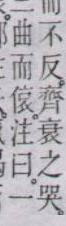 而不反。齊衰之哭。
二曲而偯。注曰。一